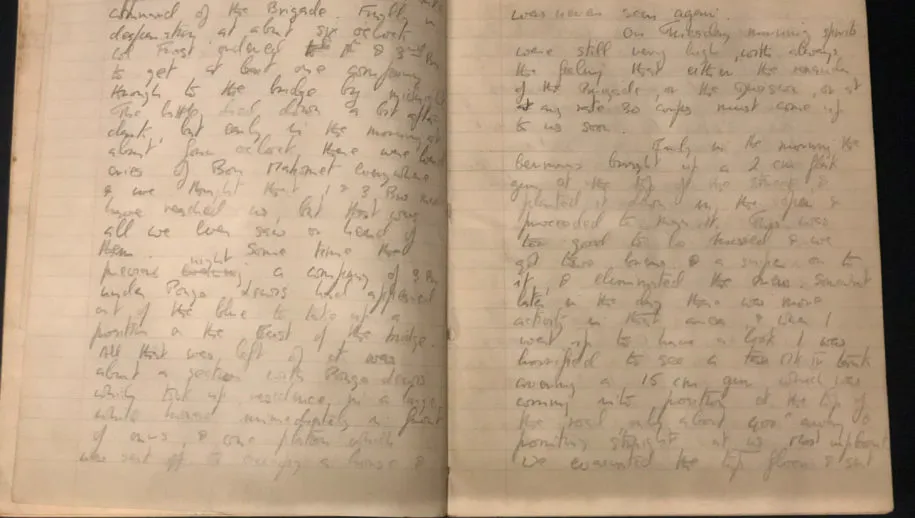 command of the Brigade. Finally in
desperation at about six oclock
Col Frost ordered 1st & 3rd Bn
to get at least one company
through to the bridge by midnight
The battle died down a bit after
dark, but early in the morning at
about four oclock there were loud
cries of Whoa Mahomet everywhere
& we thought that 1 & 3 Bns must
have reached us, but that was
all we ever saw or heard of
them. Some time that
previous night a company of 3 Bn
under Pongo Lewis had appeared
out of the blue to take up a
position on the East of the bridge.
All that was left of it was
about a section with Pongo Lewis
which took up residence in a large
white house immediately in front
of ours, & one platoon which
was sent off to occupy a house &
was never seen again.
On Tuesday morning spirits
were still very high, with always
the feeling that either the remainder
of the Brigade, or the Division, or at
at any rate 30 Corps must come up
to us soon.
Early in the morning the
Germans brought up a 2 cm flak
gun at the top of the street &
planted it down in the open &
proceeded to man it. This was
too good to be missed & we
got two brens & a sniper on to
it, & eliminated the crew. Somewhat
later in the day there was more
activity in that area & when I
went up to have a look I was
horrified to see a tank
covering a 15 cm gun which was
coming into position at the top of
the road only about 400x away &
pointing straight at us, most unpleasant
we evacuated the top floor & sent